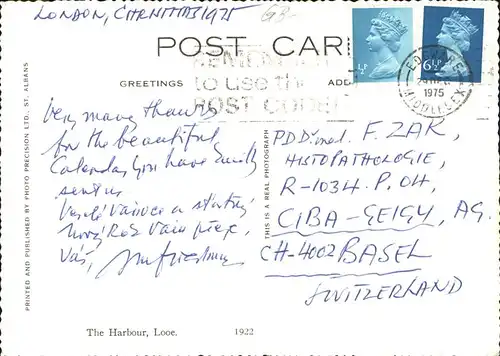 LONDON, CHRISTMAS 1975
POST CAR
GREETINGS
ADD
REMEMBER
to use the
POST CODE
½P
6½P
EDGWARE
1975
MIDDLESEX
Very many thanks
for the beautiful
Calendar you have kindly
sent us
Veselé Vánoce a
Nový Rok Vám přeje,
Váš,
P.D.Dr. med. F. ZAK,
HISTOPATHOLOGIE,
R-1034. P. 04,
CIBA-GEIGY, AG.
CH-4002 BASEL
SWITZERLAND
THIS IS A REAL PHOTOGRAPH
PRINTED AND PUBLISHED BY PHOTO PRECISION LTD. ST. ALBANS
The Harbour, Looe. 1922